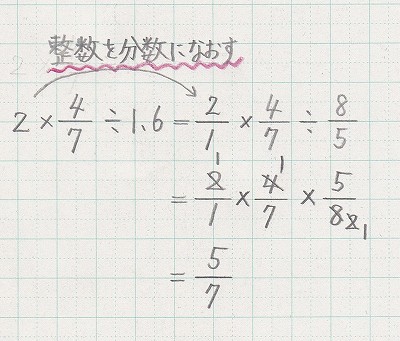 整数を分数になおす
2 × 4/7 ÷ 1.6 = 2/1 × 4/7 ÷ 8/5
= 2/1 × 4/7 × 5/8 1 1 2 1
= 5/7